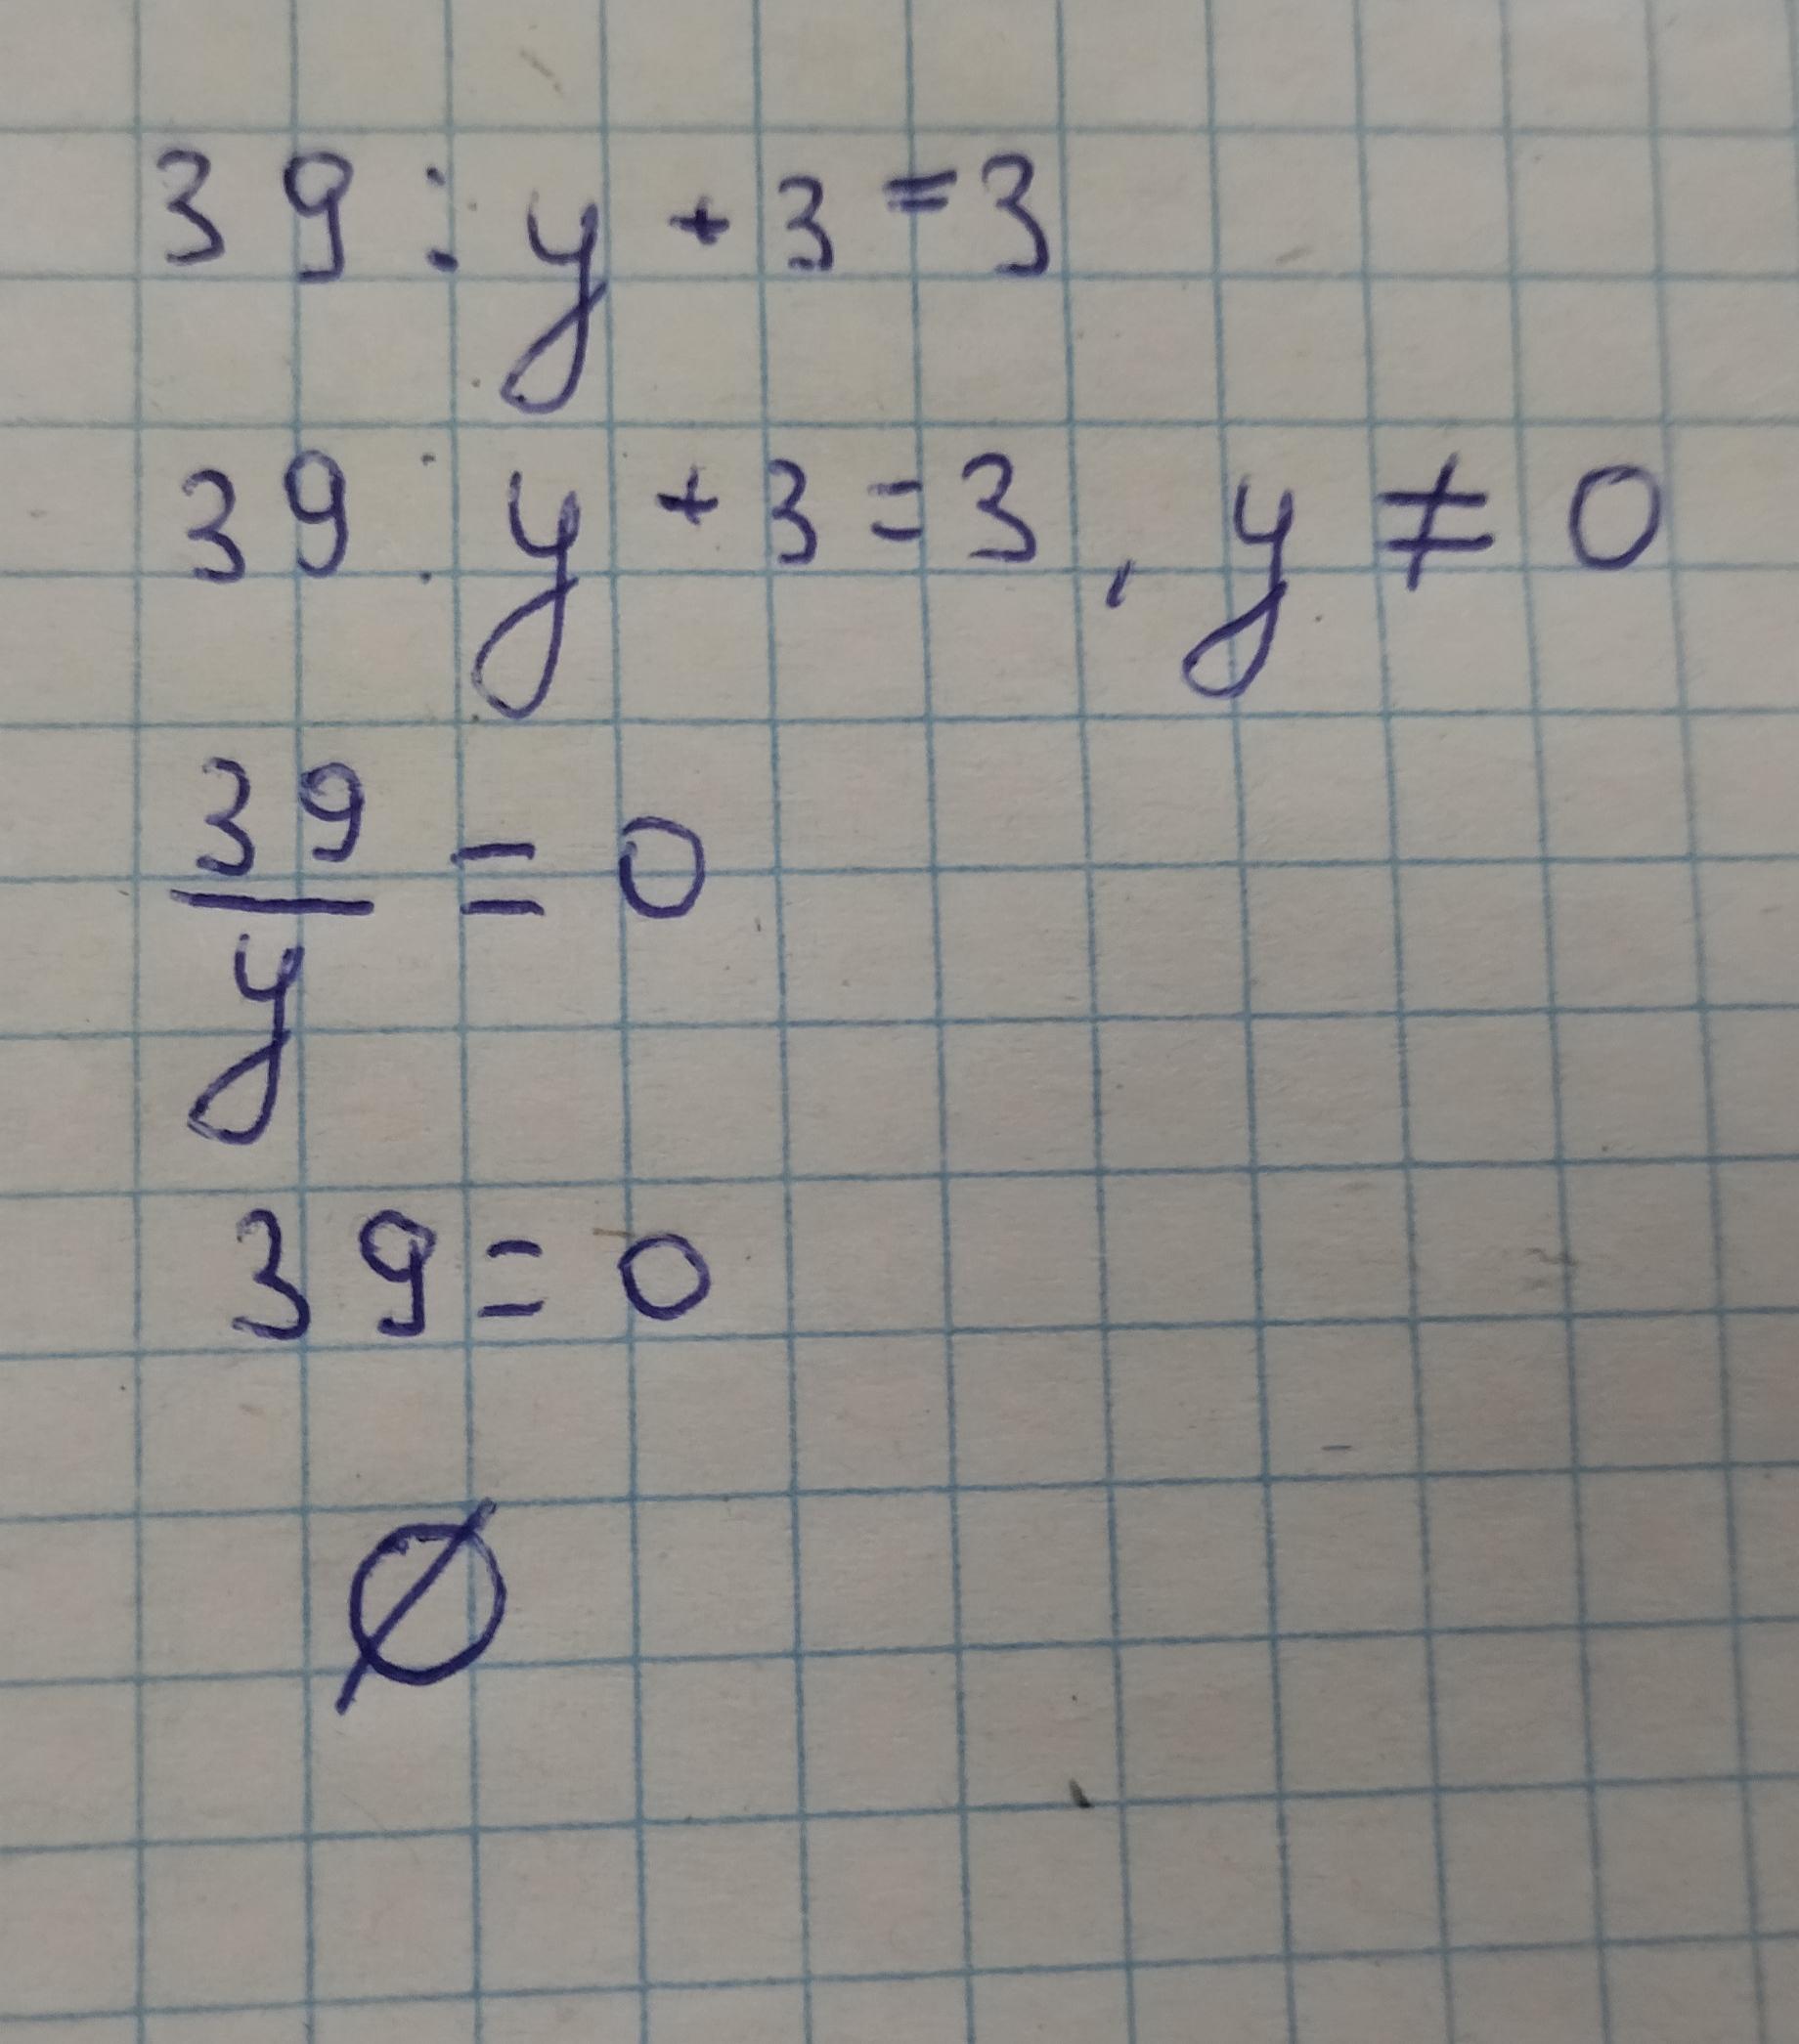 39 : y + 3 = 3
39 : y + 3 = 3, y ≠ 0
39/y = 0
39 = 0
∅